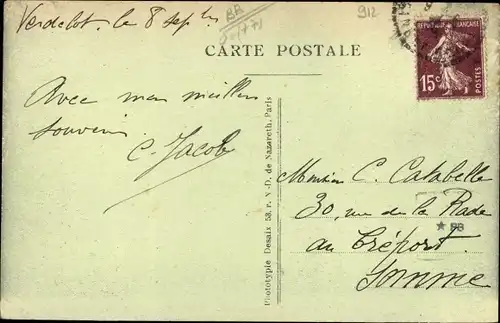 Verdelot. le 8 sept
BB
912
CARTE POSTALE
RÉPUBLIQUE FRANÇAISE
15c
POSTES
Avec mon meilleur
souvenir
C. Jacob
Phototypie Desaix 53, r. N.-D. de Nazareth, Paris
Monsieur C. Catabelle
30, rue de la Rade
★ BB
au Tréport
Somme